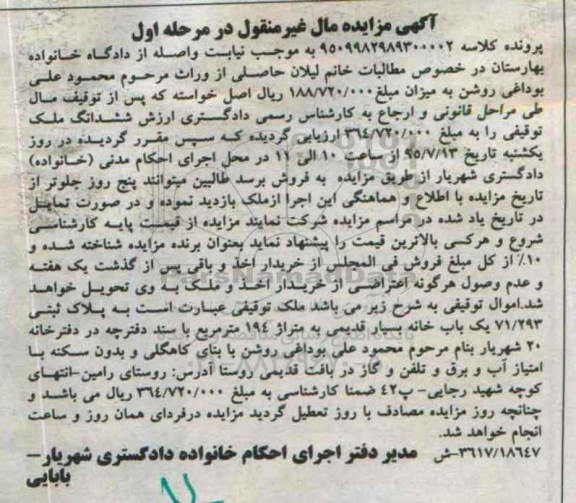 آگهی مزایده مال غیرمنقول در مرحله اول
پرونده کلاسه ۹۵۰۹۹۸۲۹۸۹۳۰۰۰۰۲ به موجب نیابت واصله از دادگاه خانواده
بهارستان در خصوص مطالبات خانم لیلان حاصلی از وراث مرحوم محمود علی
بوداغی روشن به میزان مبلغ ۱۸۸/۷۲۰/۰۰۰ ریال اصل خواسته که پس از توقیف مال
طی مراحل قانونی و ارجاع به کارشناس رسمی دادگستری ارزش ششدانگ ملک
توقیفی را به مبلغ ۳۶۴/۷۲۰/۰۰۰ ارزیابی گردیده که سپس مقرر گردیده در روز
یکشنبه تاریخ ۹۵/۷/۱۳ از ساعت ۱۰ الی ۱۱ در محل اجرای احکام مدنی (خانواده)
دادگستری شهریار از طریق مزایده به فروش برسد طالبین میتوانند پنج روز جلوتر از
تاریخ مزایده با اطلاع و هماهنگی این اجرا ازملک بازدید نموده و در صورت تمایل
در تاریخ یاد شده در مراسم مزایده شرکت نمایند مزایده از قیمت پایه کارشناسی
شروع و هرکسی بالاترین قیمت را پیشنهاد نماید بعنوان برنده مزایده شناخته شده و
۱۰٪ از کل مبلغ فروش فی المجلس از خریدار اخذ و باقی پس از گذشت یک هفته
و عدم وصول هرگونه اعتراضی از خریدار اخذ و ملک به وی تحویل خواهد
شد.اموال توقیفی به شرح زیر می باشد ملک توقیفی عبارت است به پلاک ثبتی
۷۱/۲۹۳ یک باب خانه بسیار قدیمی به متراژ ۱۹۴ مترمربع با سند دفترچه در دفترخانه
۲۰ شهریار بنام مرحوم محمود علی بوداغی روشن با بنای کاهگلی و بدون سکنه با
امتیاز آب و برق و تلفن و گاز در بافت قدیمی روستا آدرس: روستای رامین-انتهای
کوچه شهید رجایی- پ۴۲ ضمنا کارشناسی به مبلغ ۳۶۴/۷۲۰/۰۰۰ ریال می باشد و
چنانچه روز مزایده مصادف با روز تعطیل گردید مزایده درفردای همان روز و ساعت
انجام خواهد شد.
۳۶۱۷/۱۸۶۴۷-ش مدیر دفتر اجرای احکام خانواده دادگستری شهریار-
بابایی